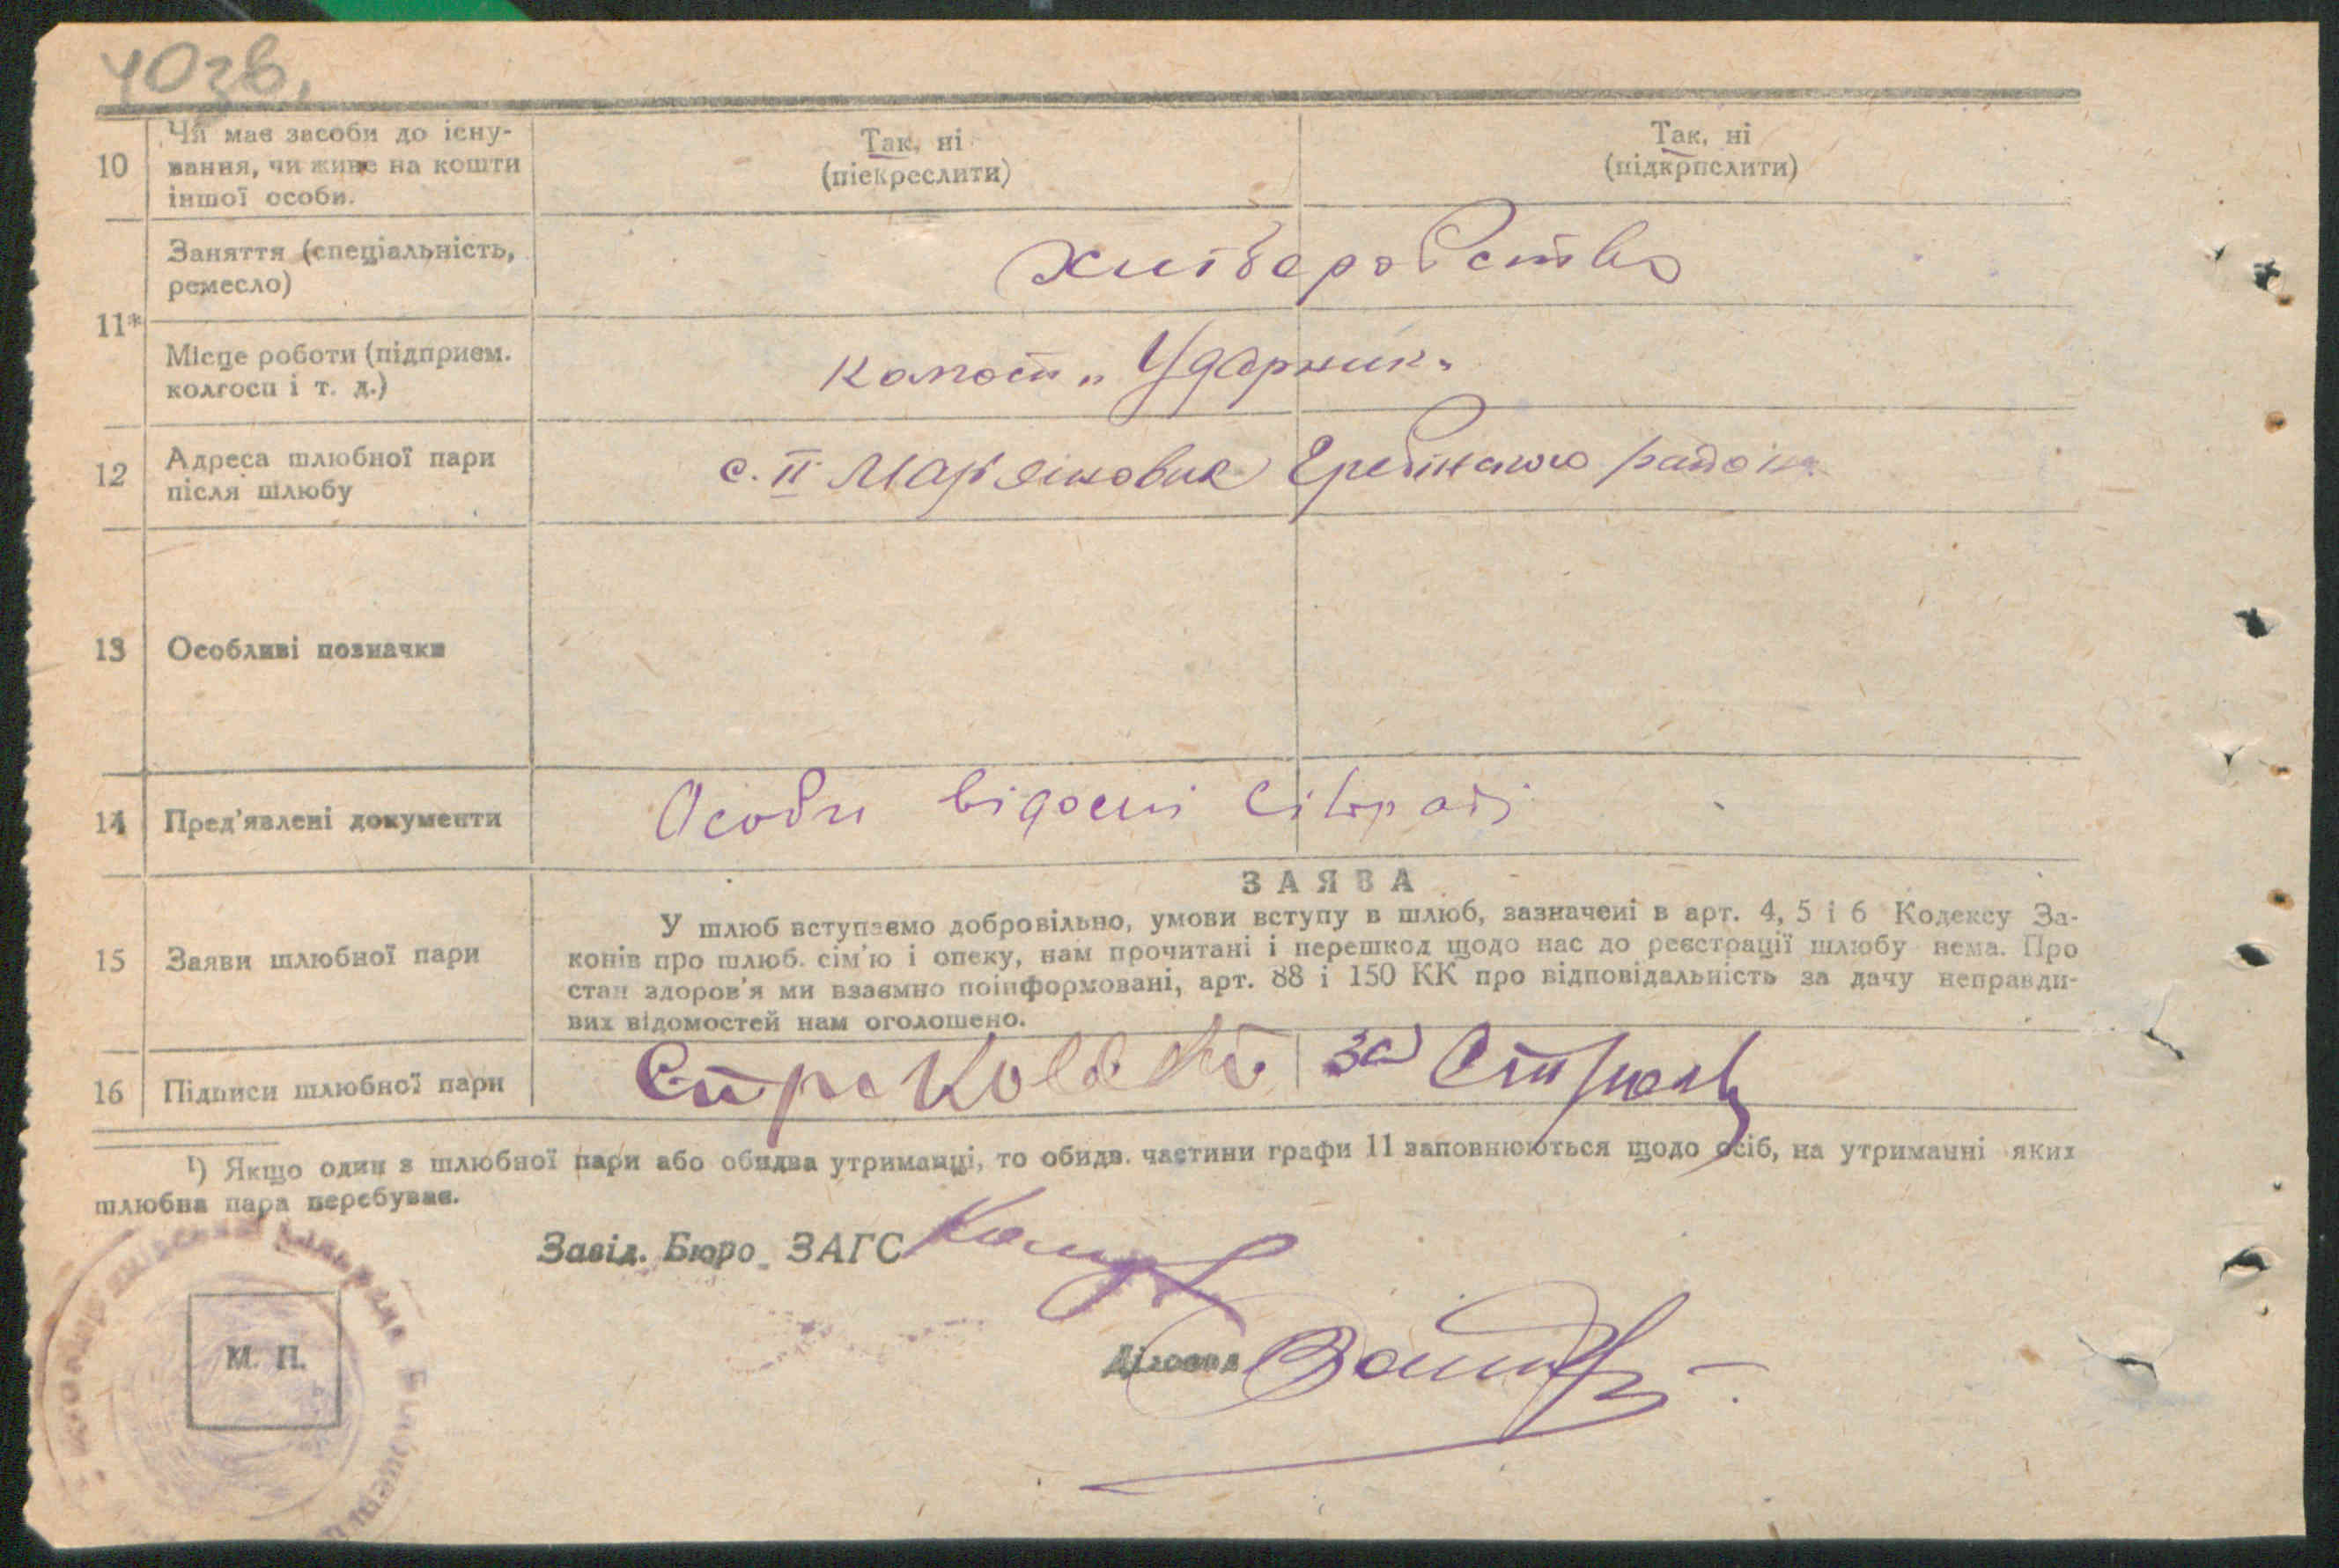 40зв.
10
Чи має засоби до існу-
вання, чи живе на кошти
іншої особи.
Так, ні
(піекреслити)
Так, ні
(підкрпслити)
11*
Заняття (спеціальність,
ремесло)
Хліборобство
Місце роботи (підприєм.
колгосп і т. д.)
Колгосп „Ударник"
12
Адреса шлюбної пари
після шлюбу
с. II Мар'яновка Гребінкового району
13
Особливі позначки
14
Пред'явлені документи
Особи відомі сільраді
15
Заяви шлюбної пари
ЗАЯВА
У шлюб вступаємо добровільно, умови вступу в шлюб, зазначені в арт. 4, 5 і 6 Кодексу За-
конів про шлюб. сім'ю і опеку, нам прочитані і перешкод щодо нас до реєстрації шлюбу нема. Про
стан здоров'я ми взаємно поінформовані, арт. 88 і 150 КК про відповідальність за дачу неправди-
вих відомостей нам оголошено.
16
Підписи шлюбної пари
за
¹) Якщо один з шлюбної пари або обидва утриманці, то обидв. частини графи 11 заповнюються щодо осіб, на утриманні яких
шлюбна пара перебуває.
Завід. Бюро ЗАГС
Діловод
М. П.